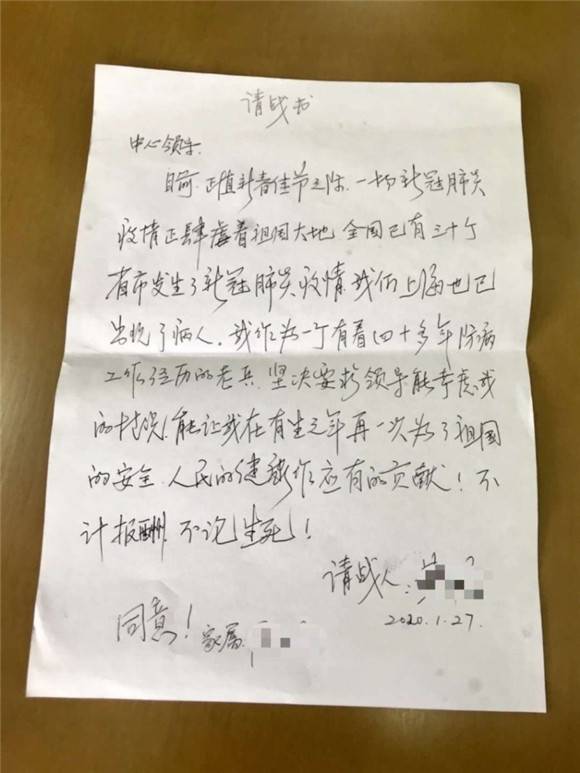 请战书
中心领导:
目前,正值新春佳节之际,一场新冠肺炎
疫情正肆虐着祖国大地,全国已有三十个
省市发生了新冠肺炎疫情,我们上海也已
出现了病人。我作为一个有着四十多年防病
工作经历的老兵,坚决要求领导能考虑我
的请战!能让我在有生之年再一次为了祖国
的安全,人民的健康作应有的贡献!不
计报酬,不论生死!
请战人:
2020.1.27.
同意!家属: